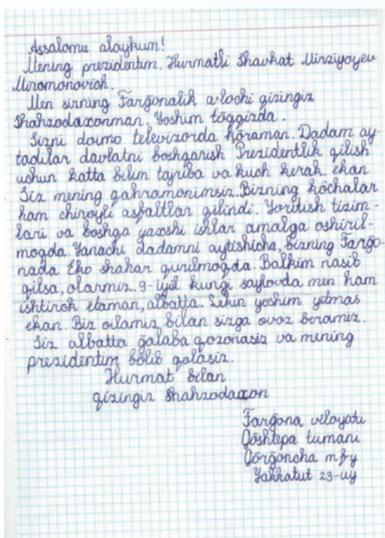 Assalomu alaykum!
Mening prezidentim. Hurmatli Shavkat Mirziyoyev
Miromonovich.
Men sizning Farg'onalik a'lochi qizingiz
Shahzodaxonman. Yoshim to'qqizda.
Sizni doimo televizorda ko'raman. Dadam ay-
tadilar davlatni boshqarish Prezidentlik qilish
uchun katta bilim tajriba va kuch kerak ekan
Siz mening qahramonimsiz. Bizning ko'chalar
ham chiroyli asfaltlar qilindi. Yoritish tizim-
lari va boshqa yaxshi ishlar amalga oshiril-
moqda. Yanachi dadamni aytishicha, bizning Farg'o-
nada Eko shahar qurilmoqda. Balkim nasib
qilsa, olarmiz. 9-iyul kungi saylovda men ham
ishtirok etaman, albatta. Lekin yoshim yetmas
ekan. Biz oilamiz bilan sizga ovoz beramiz.
Siz albatta g'alaba qozonasiz va mening
prezidentim bo'lib qolasiz.
Hurmat bilan
qizingiz Shahzodaxon
Farg'ona viloyati
Qo'shtepa tumani
Qo'rg'oncha mfy
Yakkatut 23-uy